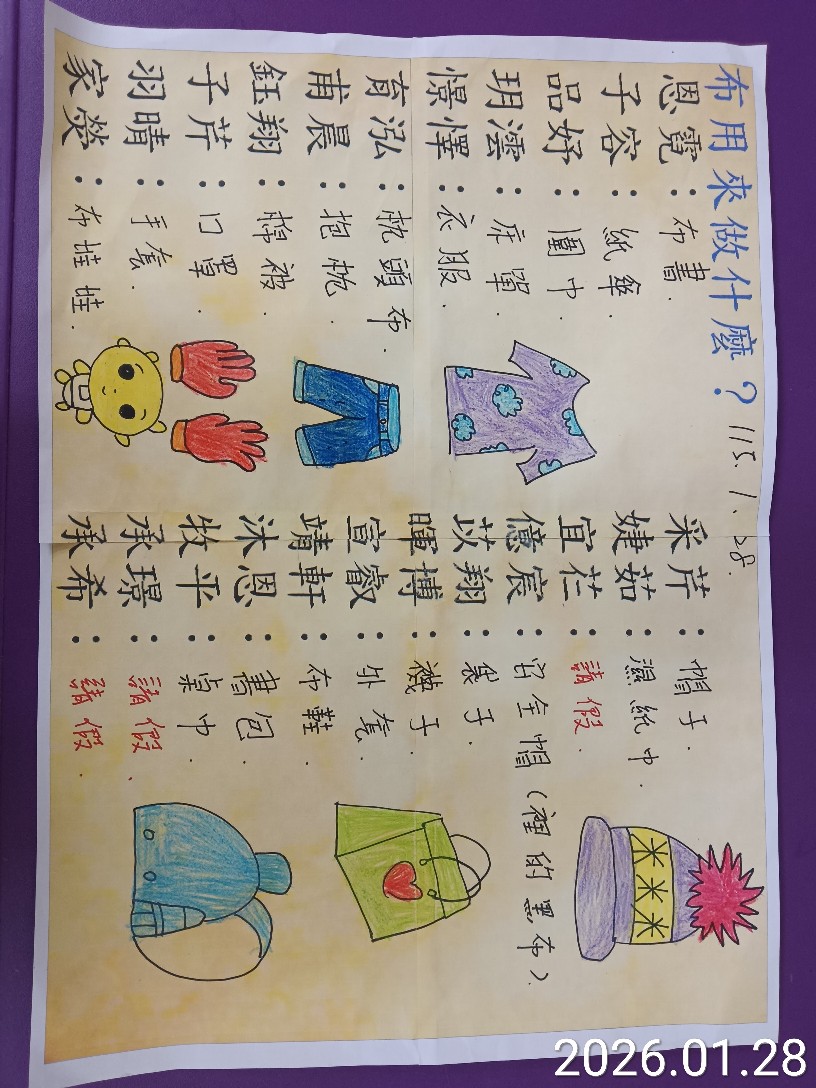 布用來做什麼？ 115.1.28.
恩霓：布書.
子容：紙傘.
品妤：圍巾.
玥澐：床單.
憬懌：衣服.
育泓：枕頭布.
甫晨：抱枕.
鈺翔：棉被.
子芹：口罩.
羽晴：手套.
家熒：布娃娃.
采芹：帽子.
婕茹：濕紙巾.
宜芢：請假.
億宸：安全帽(裡的黑布).
苡翔：袋子.
暉博：襪子.
宣叡：外套.
靖軒：布鞋.
沐恩：書包.
牧平：桌巾.
承璟：請假.
承希：請假.
2026.01.28